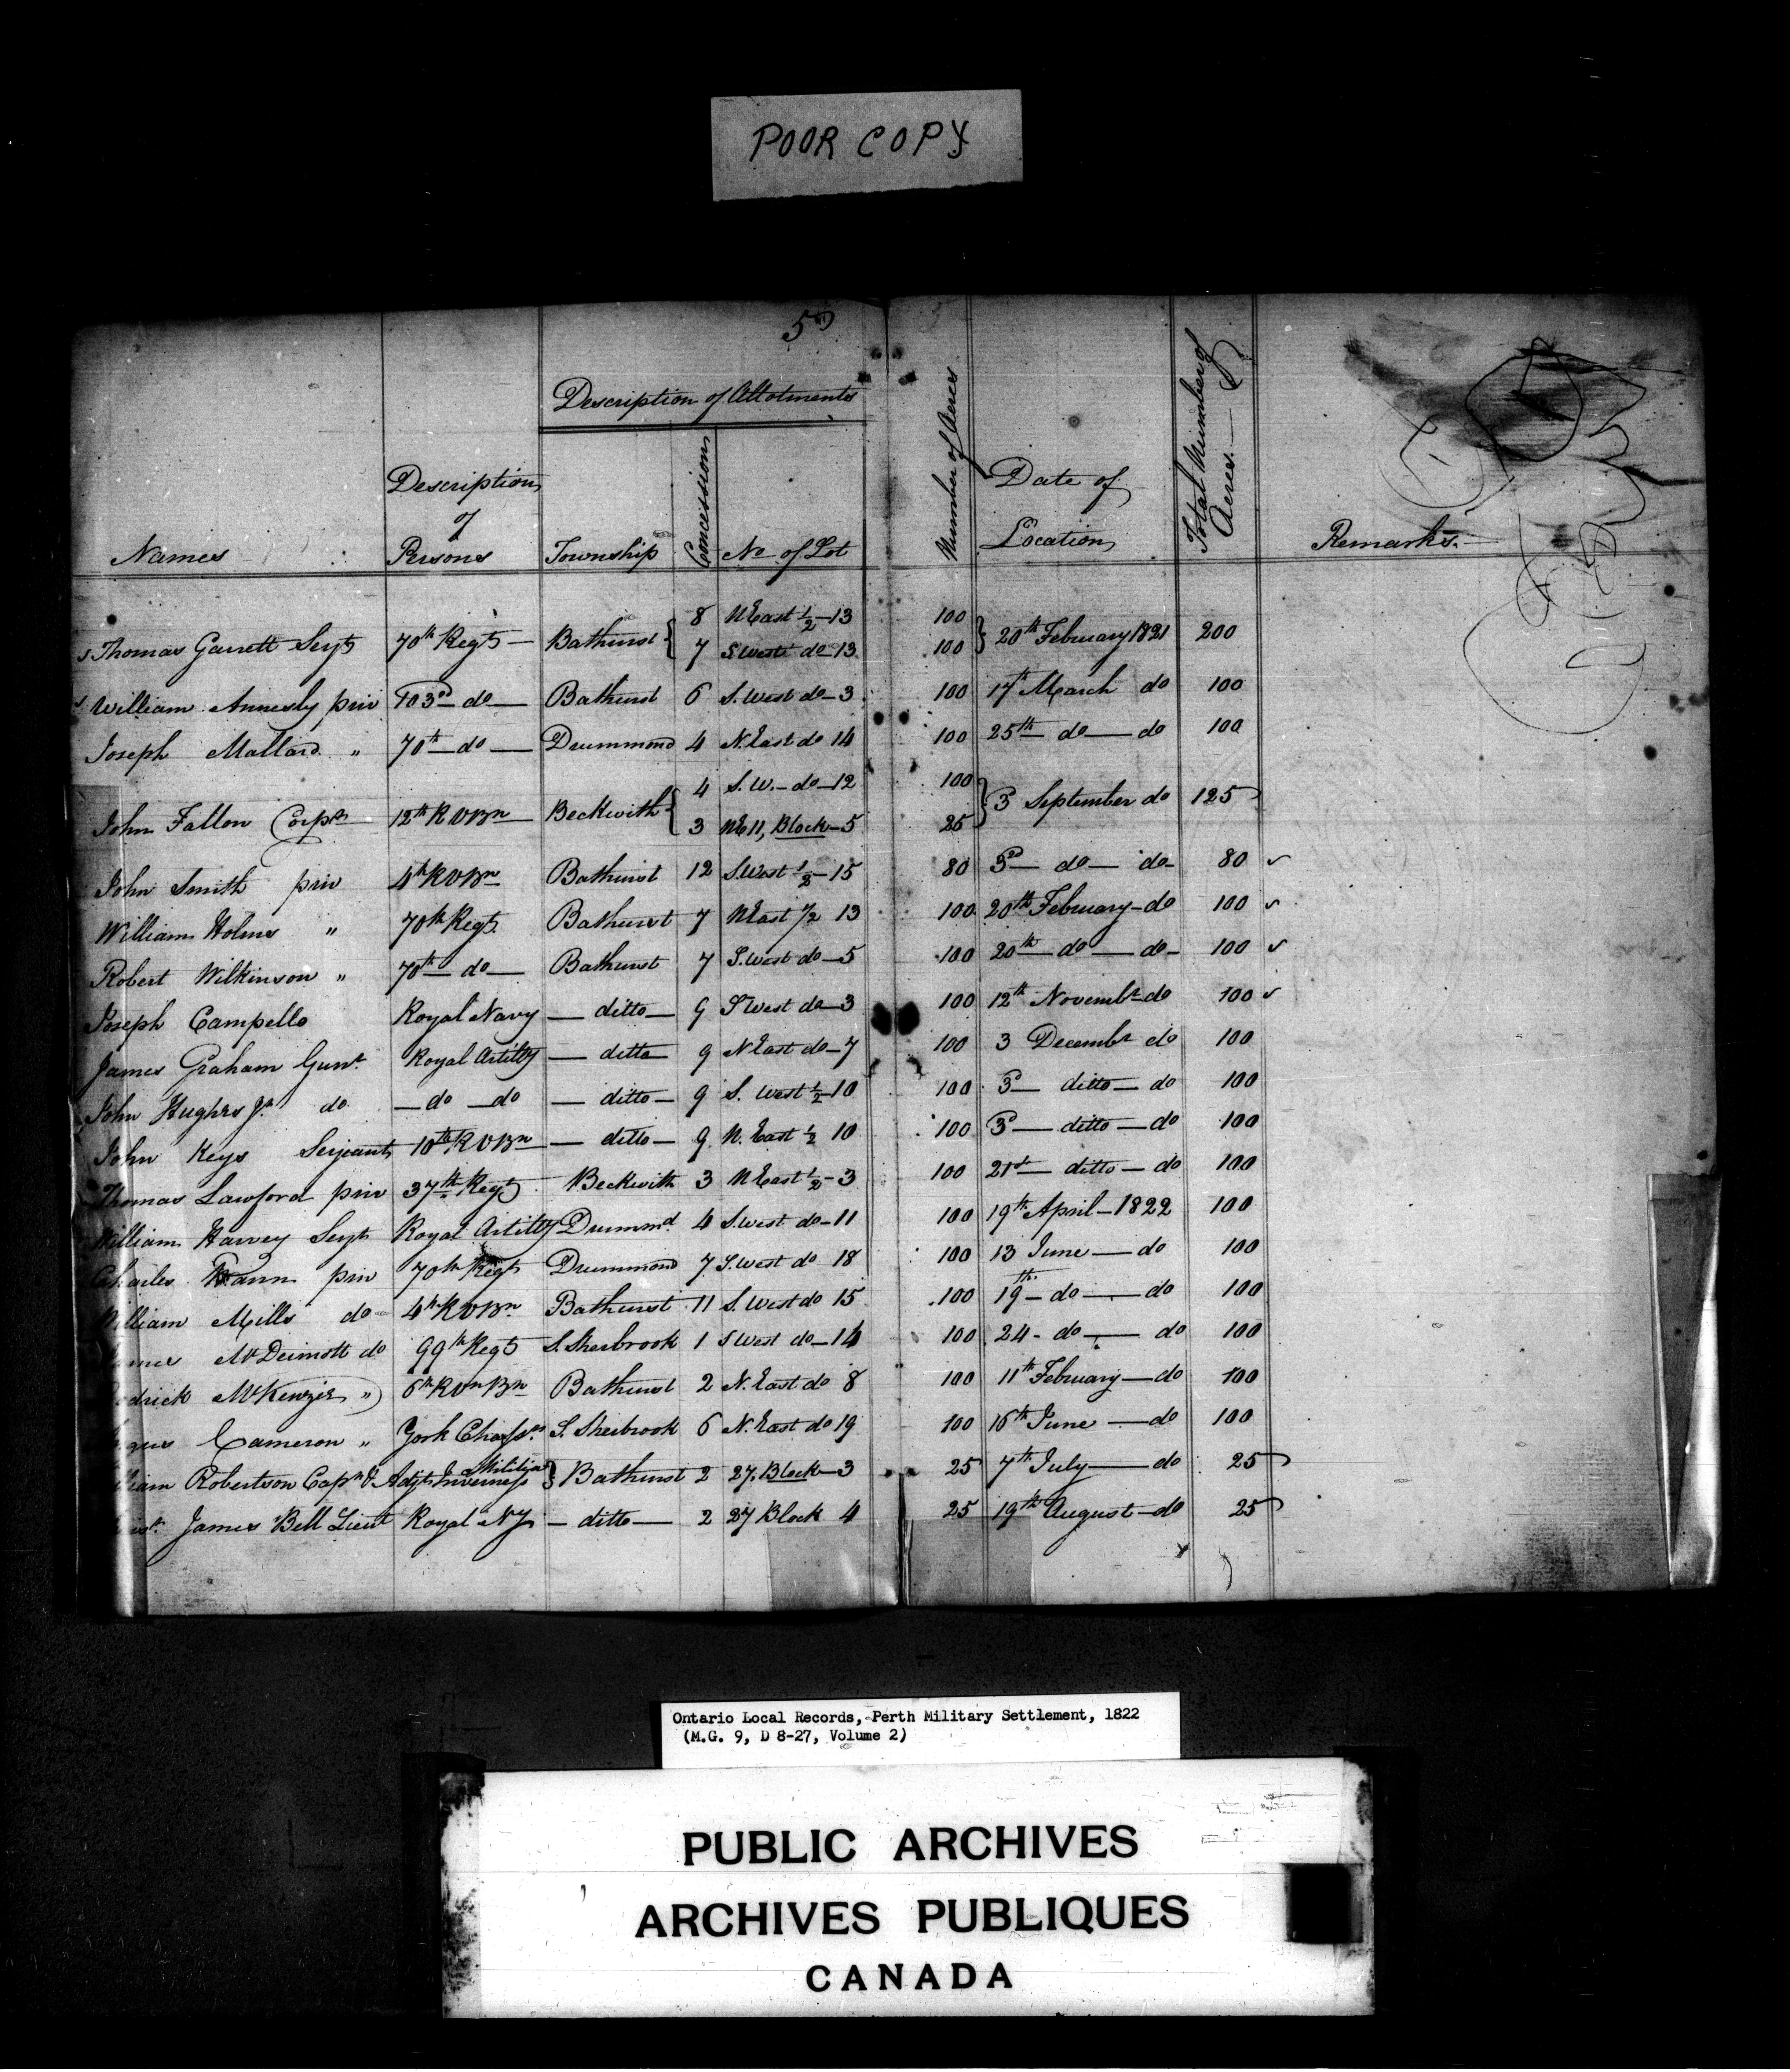 POOR COPY
5
Description of Allotments
Names
Description of Persons
Township
Concession
No of Lot
Number of Acres
Date of Location
Total Number of Acres
Remarks.
Thomas Garrett Serjt 70th Regt — Bathurst { 8 N East ½ — 13 100 } 20th February 1821 200
7 S West do — 13 100
William Annesly priv 103d do — Bathurst 6 S. West do — 3 100 17th March do 100
Joseph Mallard " 70th do — Drummond 4 N. East do 14 100 25th do — do 100
John Fallon Corpl 12th R V Bn Beckwith { 4 S. W. — do — 12 100 } 3 September do 125
3 N E 11, Block — 5 25
John Smith priv 4th R V Bn Bathurst 12 S. West ½ — 15 80 3d — do — do — 80
William Holms " 70th Regt. Bathurst 7 N East ½ 13 100 20th February — do 100
Robert Wilkinson " 70th — do — Bathurst 7 S. West do — 5 100 20th — do — do — 100
Joseph Campello Royal Navy — ditto — 9 S West do — 3 100 12th Novembr do 100
James Graham Gunr. Royal Artilly — ditto — 9 N East do — 7 100 3 Decembr do 100
John Hughes Jr. do — do — do — ditto — 9 S. West ½ 10 100 3d — ditto — do 100
John Keys Serjeant 10th R V Bn — ditto — 9 N. East ½ 10 100 3d — ditto — do 100
Thomas Lawford priv 37th Regt Beckwith 3 N East ½ — 3 100 21st — ditto — do 100
William Harvey Serjt Royal Artilly Drummd 4 S. West do — 11 100 19th April — 1822 100
Charles priv 70th Regt Drummond 7 S. West do 18 100 13 June — do 100
William Mills do 4th R V Bn Bathurst 11 S. West do 15 100 19th — do — do 100
McDermott do 99th Regt S. Sherbrook 1 S West do — 14 100 24 — do — do 100
drick McKenzie " 6th R Vn Bn Bathurst 2 N. East do 8 100 11th February — do 100
Cameron " York Chassrs S. Sherbrook 6 N. East do 19 100 16th June — do 100
liam Robertson Capt & Adjt Inverness Militia } Bathurst 2 27, Block — 3 25 7th July — do 25
James Bell Lieut Royal Ny — ditto — 2 27 Block 4 25 19th August — do 25
Ontario Local Records, Perth Military Settlement, 1822
(M.G. 9, D 8-27, Volume 2)
PUBLIC ARCHIVES
ARCHIVES PUBLIQUES
CANADA